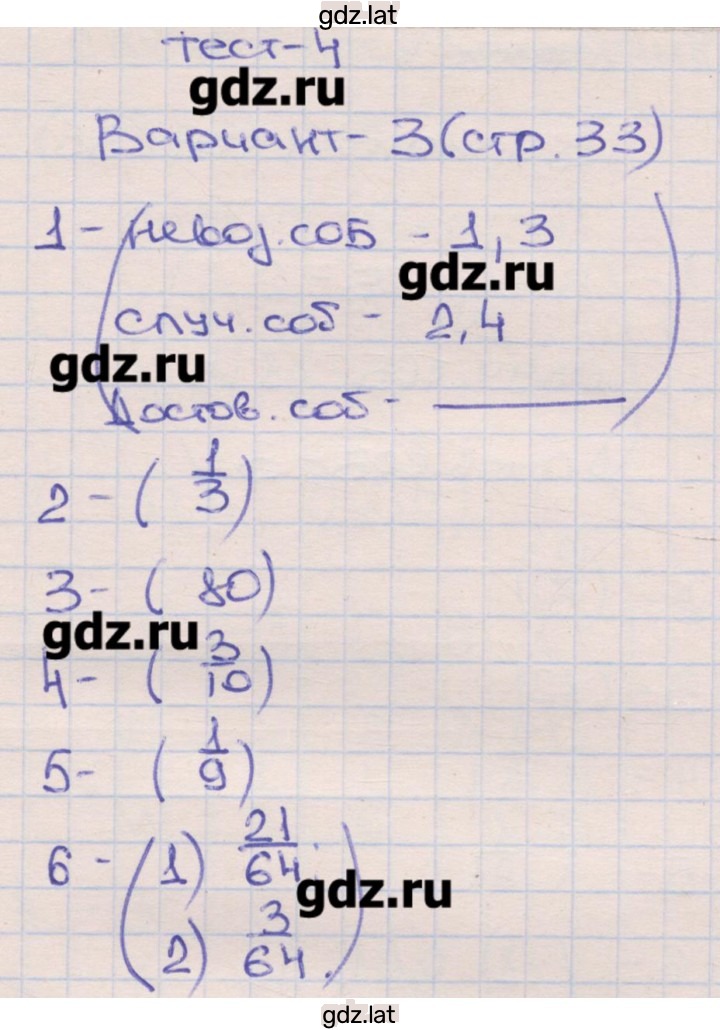 gdz.lat
тест-4
gdz.ru
Вариант-3(стр.33)
1-(невоз.соб - 1,3
gdz.ru
случ.соб - 2,4
gdz.ru
Достов.соб - ———)
2-(1/3)
3-(80)
gdz.ru
4-(3/10)
5-(1/9)
6-(1) 21/64;
gdz.ru
2) 3/64.)
gdz.lat